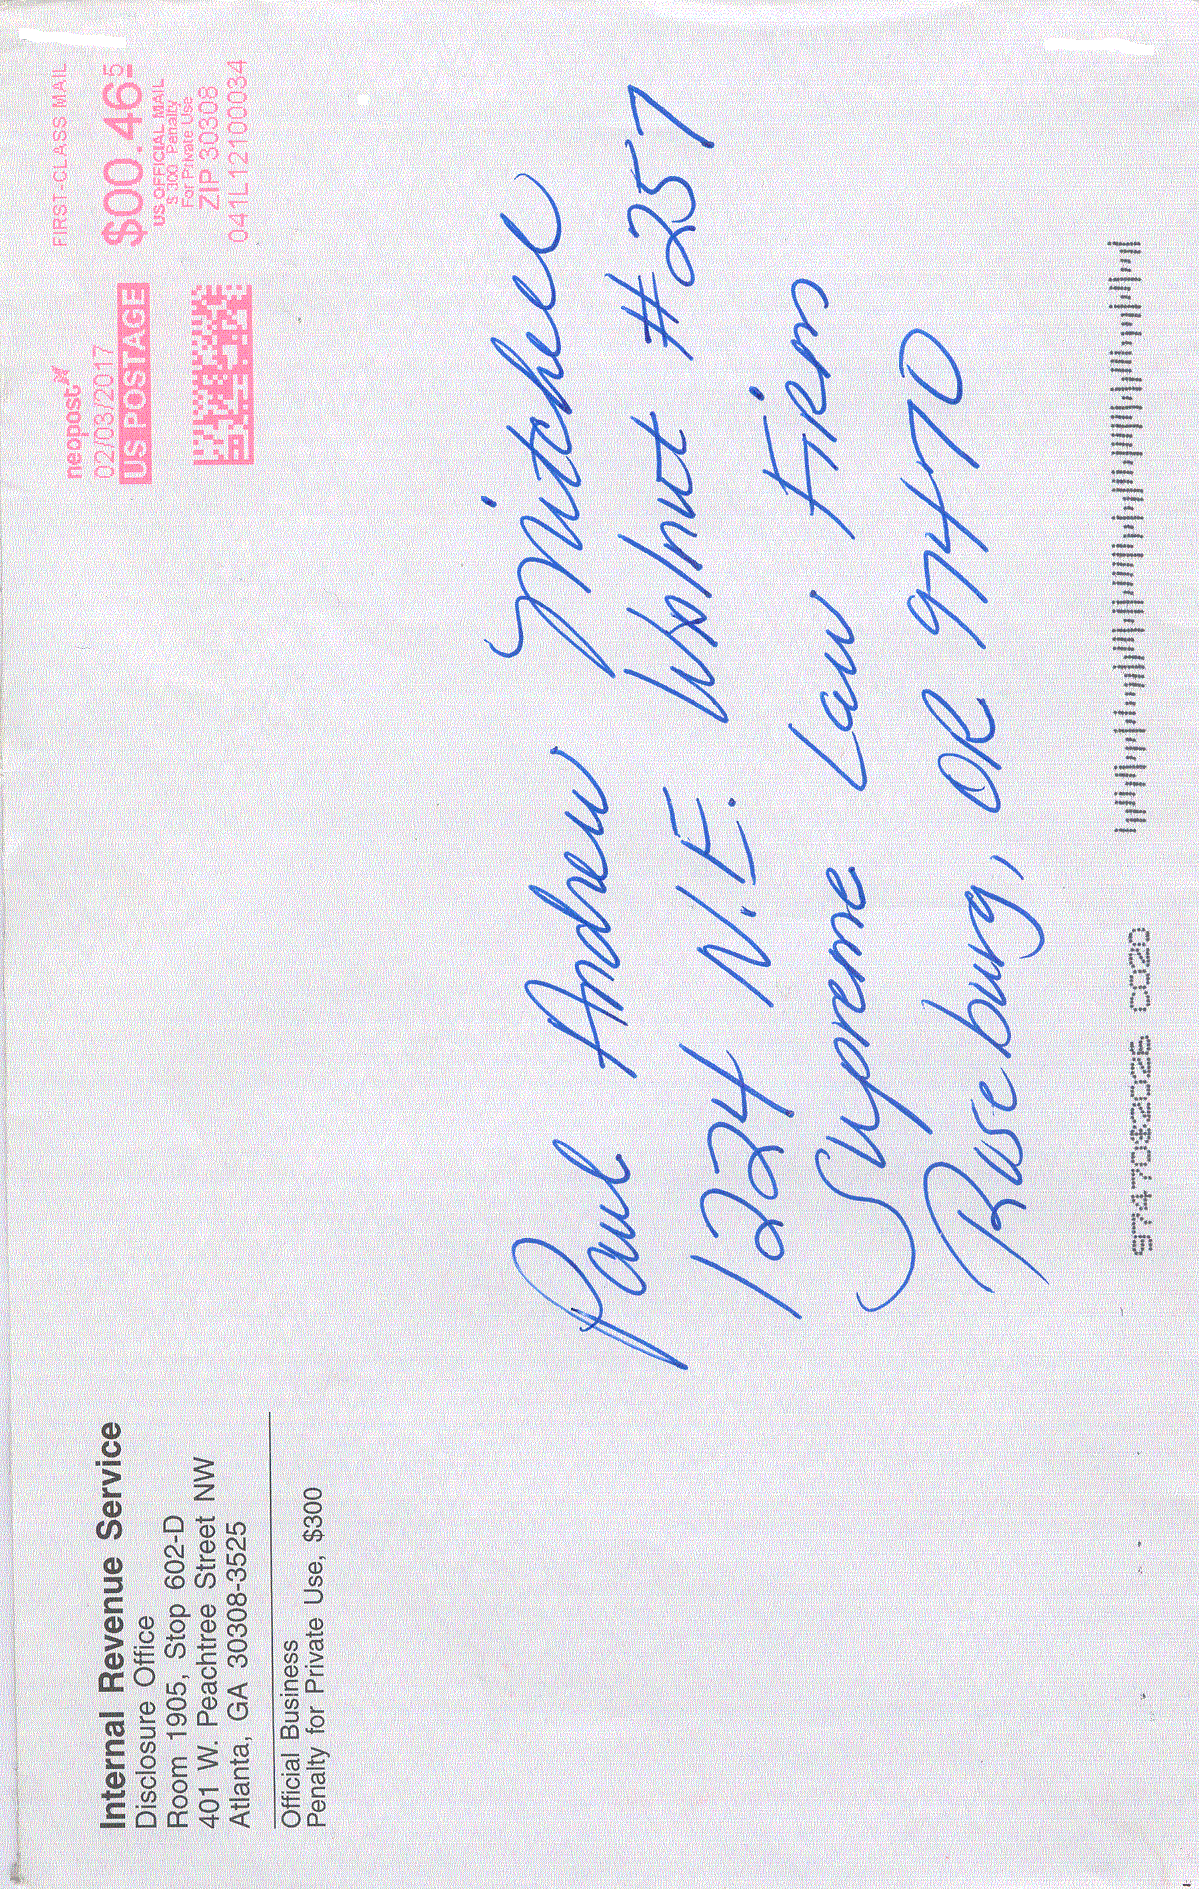 Internal Revenue Service
Disclosure Office
Room 1905, Stop 602-D
401 W. Peachtree Street NW
Atlanta, GA 30308-3525
Official Business
Penalty for Private Use, $300
neopost
02/03/2017
US POSTAGE
FIRST-CLASS MAIL
$00.46⁵
US OFFICIAL MAIL
$300 Penalty
For Private Use
ZIP 30308
041L12100034
Paul Andrew Mitchell
1224 N.E. Walnut #257
Supreme Law Firm
Roseburg, OR 97470
97470$2026 C020